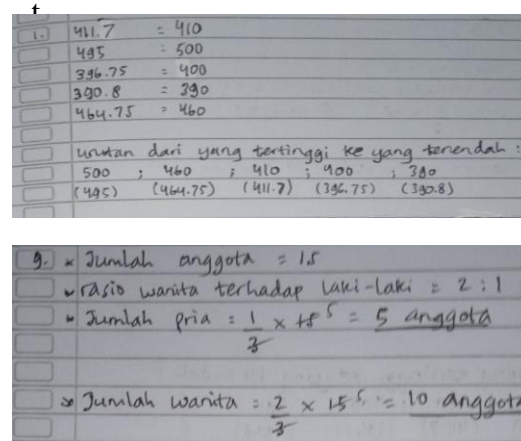 t
1. 411.7 = 410
495 = 500
396.75 = 400
390.8 = 390
464.75 = 460
urutan dari yang tertinggi ke yang terendah :
500 ; 460 ; 410 ; 400 ; 390
(495) (464.75) (411.7) (396.75) (390.8)
9. * Jumlah anggota = 15
* rasio wanita terhadap laki-laki = 2 : 1
* Jumlah pria = 1/3 × 15 5 = 5 anggota
* Jumlah wanita = 2/3 × 15 5 = 10 anggota